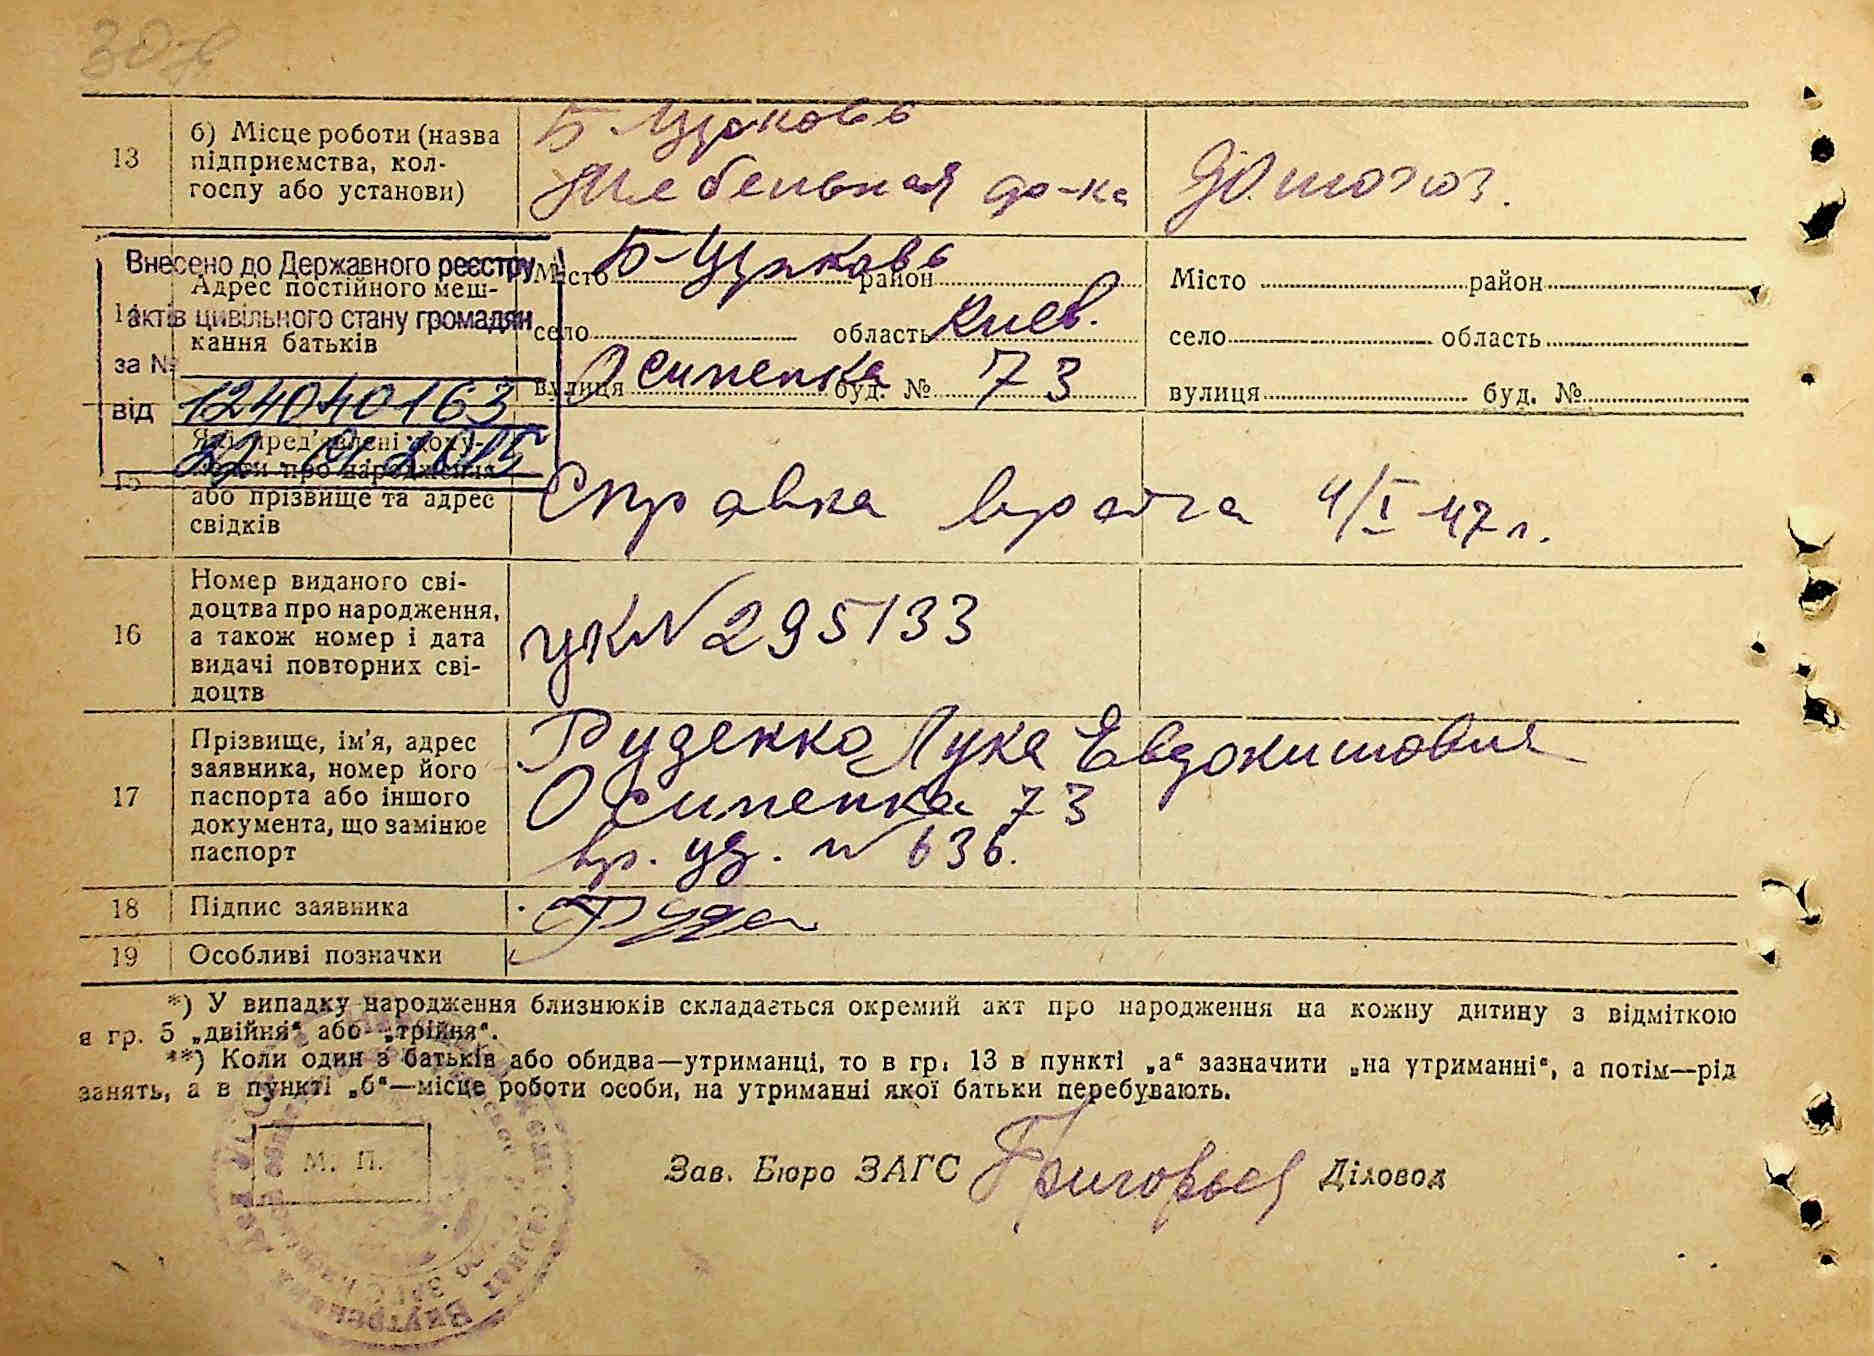 13
б) Місце роботи (назва
підприємства, кол-
госпу або установи)
Б-Церковь
Мебельная ф-ка
Домохоз.
Внесено до Державного реєстру
актів цивільного стану громадян
за №
124040163
від 22.01.2015
14
Адрес постійного меш-
кання батьків
Місто Б-Церковь район
село область Киев.
вулиця Осипенка буд. № 73
Місто район
село область
вулиця буд. №
15
Які пред'явлені доку-
менти про народження
або прізвище та адрес
свідків
Справка врача 4/I 47 г.
16
Номер виданого сві-
доцтва про народження,
а також номер і дата
видачі повторних сві-
доцтв
УК N 295133
17
Прізвище, ім'я, адрес
заявника, номер його
паспорта або іншого
документа, що замінює
паспорт
Руденко Лука Евдокимович
Осипенка 73
вр. уд. N 636.
18
Підпис заявника
Руде
19
Особливі позначки
*) У випадку народження близнюків складається окремий акт про народження на кожну дитину з відміткою
в гр. 5 „двійня“ або „трійня“.
**) Коли один з батьків або обидва—утриманці, то в гр. 13 в пункті „а“ зазначити „на утриманні“, а потім—рід
занять, а в пункті „б“—місце роботи особи, на утриманні якої батьки перебувають.
М. П.
Зав. Бюро ЗАГС Григорьев Діловод